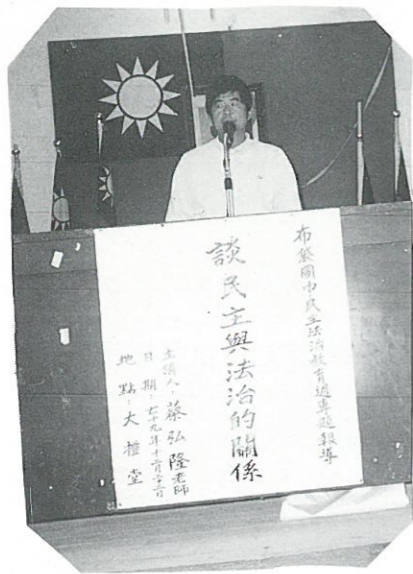 布袋國中民主法治教育週專題報導
談民主與法治的關係
主講人：蔡弘隆老師
日期：七十九年十二月廿二日
地點：大禮堂